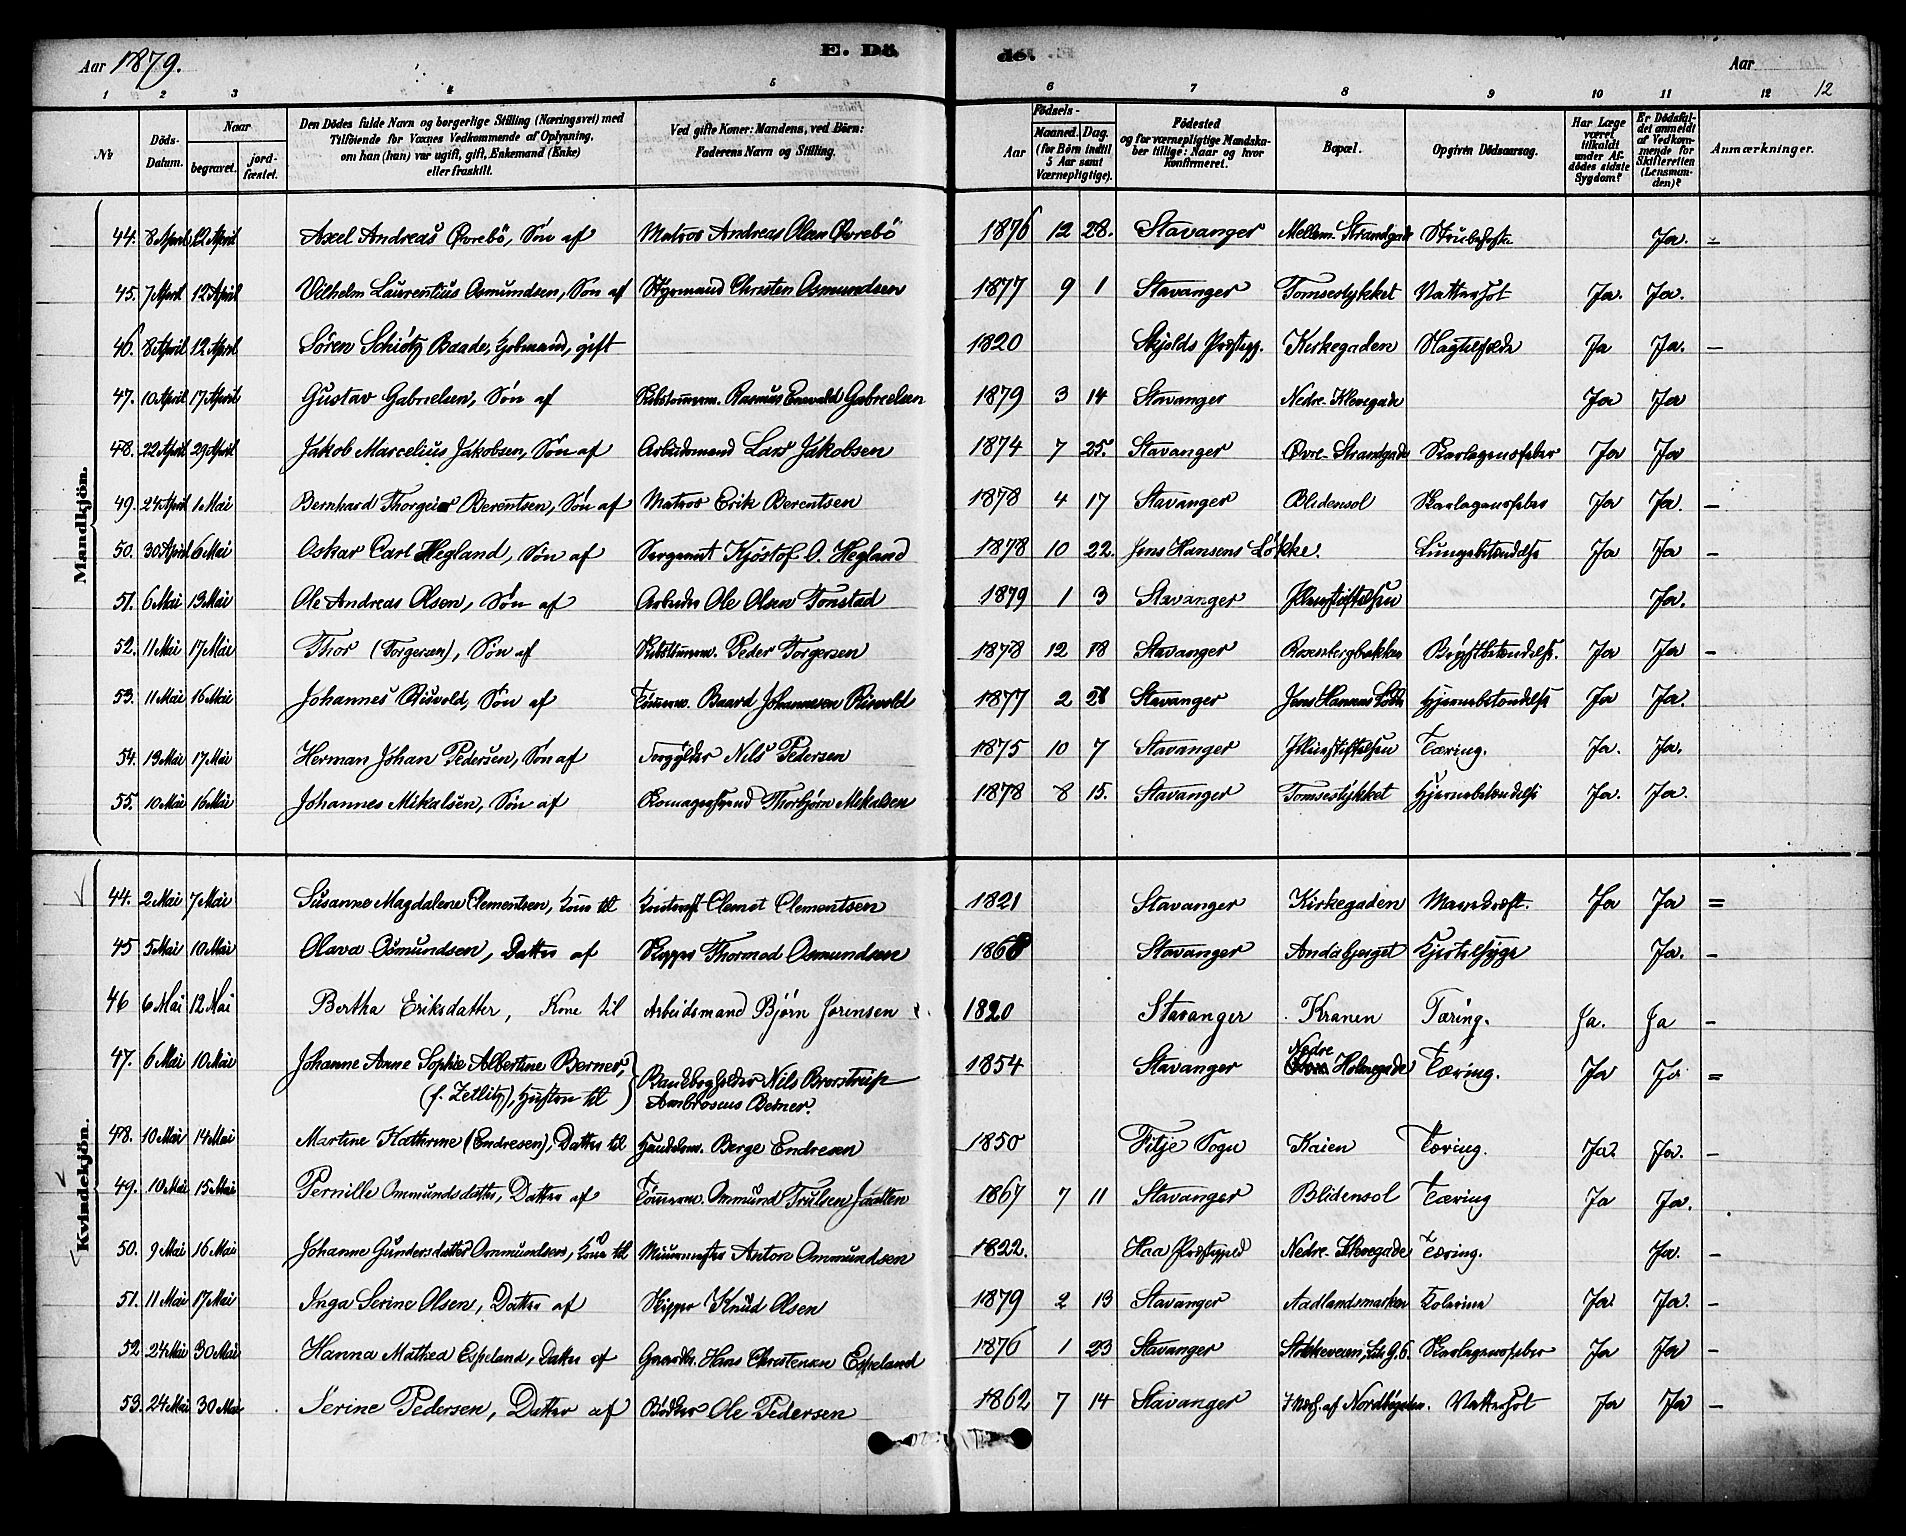 Aar 1879. E. Dö de. Aar
1 2 3 4 5 6 7 8 9 10 11 12 12
No Döds-Datum. Naar begravet. jordfæstet. Den Dödes fulde Navn og borgerlige Stilling (Næringsvei) med Tilföiende for Voxnes Vedkommende af Oplysning, om han (hun) var ugift, gift, Enkemand (Enke) eller fraskilt. Ved gifte Koner: Mandens, ved Börn: Faderens Navn og Stilling. Födsels- Aar Maaned. Dag. (for Börn indtil 5 Aar samt Værnepligtige). Födested og for værnepligtige Mandskaber tillige: Naar og hvor konfirmeret. Bopæl. Opgiven Dödsaarsag. Har Læge været tilkaldt under Afdödes sidste Sygdom? Er Dödsfaldet anmeldt af Vedkommende for Skifteretten (Lensmanden)? Anmærkninger.
Mandkjön.
44. 8 April 12 April Axel Andreas Øvrebö, Søn af Matros Andreas Olsen Øvrebö 1876 12 28. Stavanger Mellem Strandgade Strubehoste Ja. –
45. 7 April 12 April Vilhelm Laurentius Osmundsen, Søn af Styrmand Christen Osmundsen 1877 9 1 Stavanger Tomsestykket Vattersot Ja. Ja.
46. 8 April 12 April Søren Schiøtz Baade, gift 1820 Skjolds Præstegj. Kirkegaden Slagtilfælde Ja Ja. –
47. 10 April 17 April Gustav Gabrielsen, Søn af Rasmus Enevald Gabrielsen 1879 3 14 Stavanger Nedre Klevegade Ja Ja
48. 22 April 29 April Jakob Marcelius Jakobsen, Søn af Arbeidsmand Lars Jakobsen 1874 7 25. Stavanger Øvre Strandgade Skarlagensfeber Ja Ja
49. 24 April 1 Mai Bernhard Thorgeir Berentsen, Søn af Matros Erik Berentsen 1878 4 17 Stavanger Blidensol Skarlagensfeber Ja Ja. –
50. 30 April 6 Mai Oskar Carl Hegland, Søn af Sergeant Kjøstof O. Hegland 1878 10 22. Jens Hansens Løkke. Lungebetændelse Ja Ja –
51. 6 Mai 13 Mai Ole Andreas Olsen, Søn af Arbeider Ole Olsen Tonstad 1879 1 3 Stavanger Ja.
52. 11 Mai 17 Mai Thor (Torgersen), Søn af Peder Torgersen 1878 12 18 Stavanger Rosenbergbakken Brystbetændelse. Ja Ja –
53. 11 Mai 16 Mai Johannes Risvold, Søn af Tømmerm. Baard Johannesen Risvold 1877 2 28 Stavanger Jens Hansens Løkke Hjernebetændelse Ja Ja.
54. 13 Mai 17 Mai Herman Johan Pedersen, Søn af Forgylder Nils Pedersen 1875 10 7 Stavanger Tæring. Ja. Ja.
55. 10 Mai 16 Mai Johannes Mikalsen, Søn af Skomagersvend Thorbjørn Mikalsen 1878 8 15. Stavanger Tomsestykket Hjernebetændelse Ja. Ja.
Kvindekjön.
44. 2 Mai 7 Mai Susanne Magdalene Clementsen, Kone til Clemet Clementsen 1821 Stavanger Kirkegaden Mavekræft. Ja Ja =
45 5 Mai 10 Mai Olava Osmundsen, Datter af Skipper Thormod Osmundsen 1868 Stavanger Andåsbjerget Kjertelsyge Ja. –
46 6 Mai 12 Mai Bertha Eriksdatter, Kone til Arbeidsmand Bjørn Jørensen 1820 Stavanger Kranen Tæring. Ja. Ja –
47. 6 Mai 10 Mai Johanne Anne Sophie Albertine Berner, 1854 Stavanger Nedre Holmegade Tæring. Ja Ja =
(f. Zetlitz), Hustru til Bankbogholder Nils Brorstrup
Ambrosius Berner.
48. 10 Mai 14 Mai Martine Kathrine (Endresen), Datter til Handelsm. Berge Endresen 1850 Fitje Sogn Kaien Tæring. Ja. Ja. –
49. 10 Mai 15 Mai Pernille Ommundsdatter, Datter af Tømmerm. Ommund Trulsen Jaatten 1867 7 11 Stavanger Blidensol Tæring Ja Ja.
50. 9 Mai 16 Mai Johanne Gundersdatter Ommundsen, Kone til Muurmester Anton Ommundsen 1822. Haa Præstegjeld Nedre Klevegade Tæring. Ja. –
51. 11 Mai 17 Mai Inga Serine Olsen, Datter af Skipper Knud Olsen 1879 2 13 Stavanger Aadlandsmarken Kolerine Ja. Ja. –
52 24 Mai 30 Mai Hanna Mathea Espeland, Datter af Gaardbr. Hans Christensen Espeland 1876 1 23 Stavanger Stokkeveien, Litr G. 6. Skarlagensfeber Ja Ja –
53. 24 Mai 30 Mai Serine Pedersen, Datter af Bødker Ole Pedersen 1862 7 14 Stavanger af Nordbøgaden. Vattersot Ja Ja –